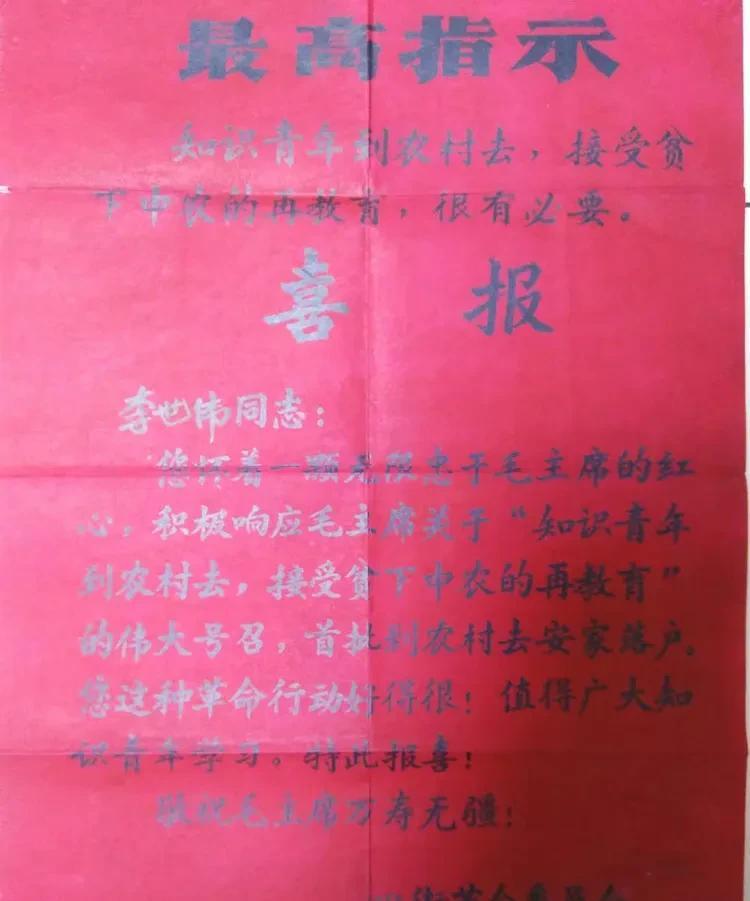 最高指示
知识青年到农村去，接受贫
下中农的再教育，很有必要。
喜报
李世伟同志：
您怀着一颗无限忠于毛主席的红
心，积极响应毛主席关于“知识青年
到农村去，接受贫下中农的再教育”
的伟大号召，首批到农村去安家落户。
您这种革命行动好得很！值得广大知
识青年学习。特此报喜！
敬祝毛主席万寿无疆！
街革命委员会